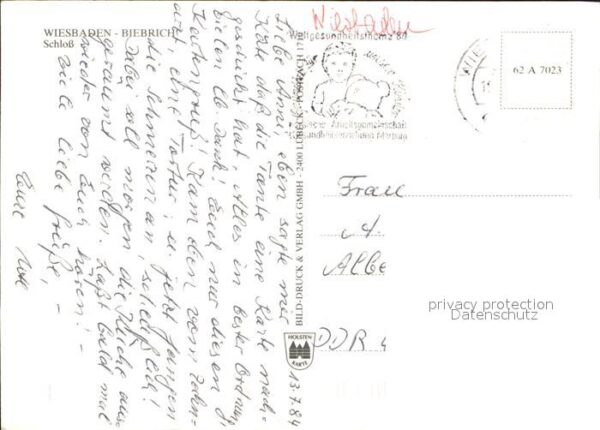 WIESBADEN - BIEBRICH
Schloß
Wiesbaden
Weltgesundheitsthema 84
62 A 7023
Liebe Anni, eben sagte mir
Käte daß die Tante eine Karte nach-
geschickt hat, Alles in bester Ordnung
Vielen lb. Dank! Euch nur diesen
Kartengruß! Kam eben vom Zahn-
arzt, eine Tortur, u. jetzt fangen
die Schmerzen an, scheußlich!
Dabei soll morgen die Küche aus-
geräumt werden. Laßt bald mal
wieder von Euch hören! -
Viele liebe Grüße, -
Eure
BILD-DRUCK & VERLAG GMBH - 2400 LÜBECK - POSTFACH
HOLSTEN
KARTE
13.7.84
Frau
A.
Albe
DDR
privacy protection
Datenschutz